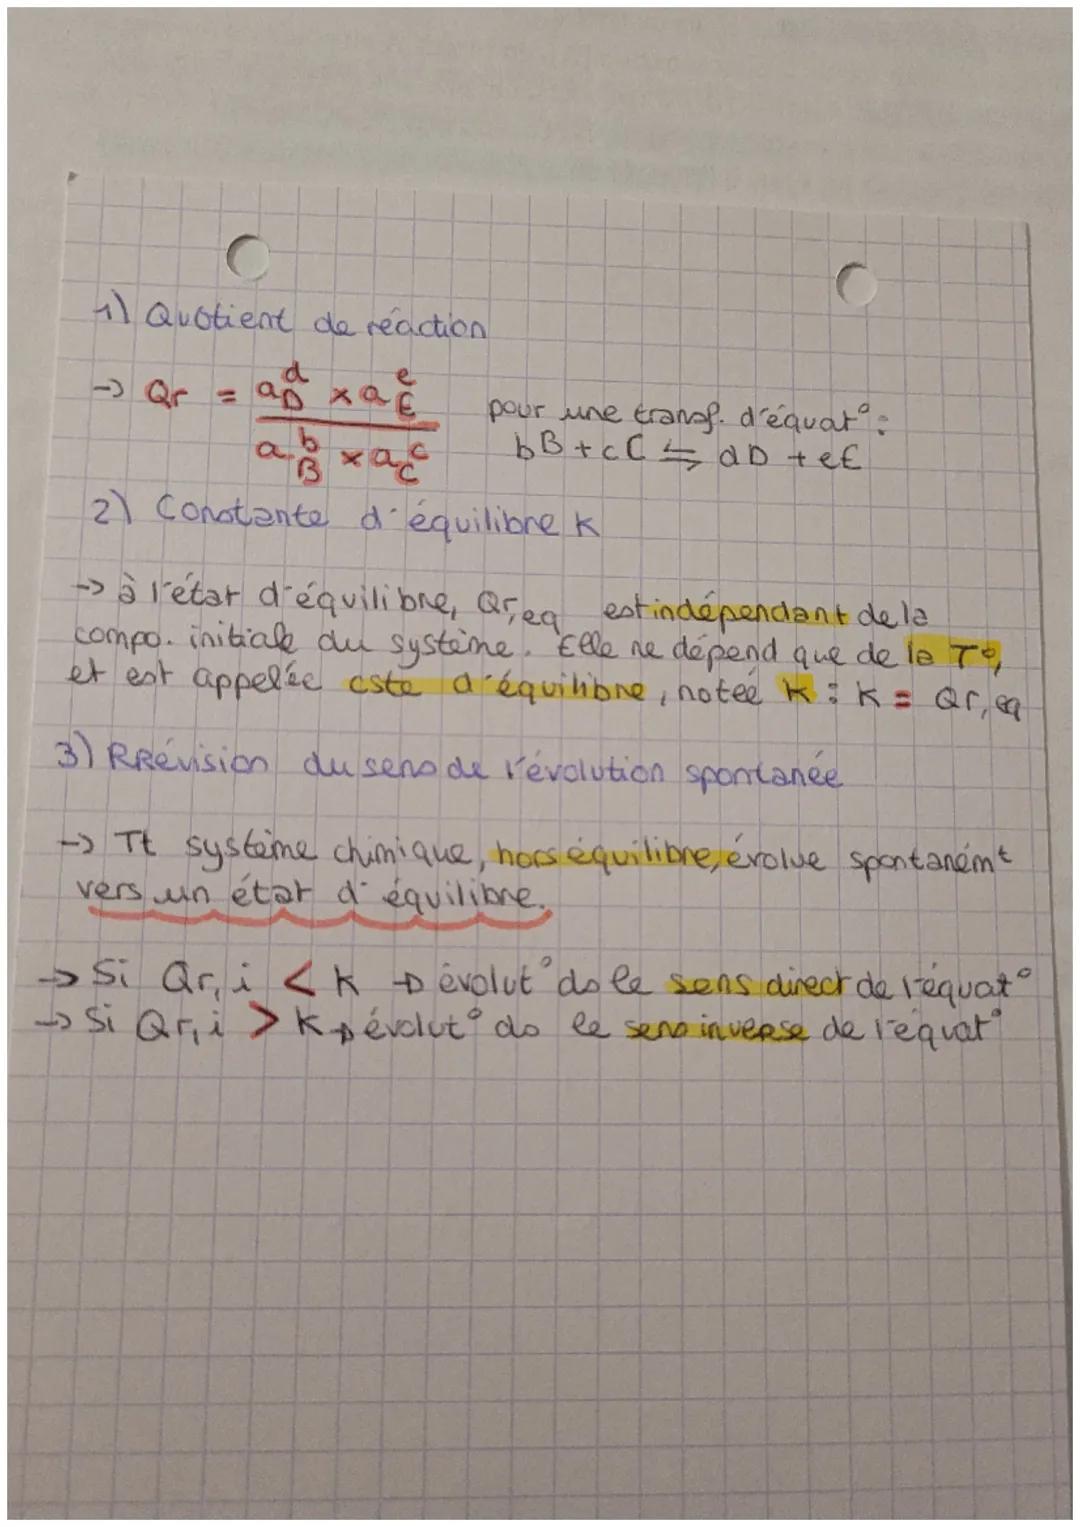 1) Quotient de réaction
→ Qr = a_D^d × a_E^e / a_B^b × a_C^c pour une transf. d'équat° :
bB + cC ⇆ dD + eE
2) Constante d'équilibre K
→ à l'état d'équilibre, Qr,eq est indépendant de la
compo. initiale du système. Elle ne dépend que de la T°,
et est appelée cste d'équilibre, notée K : K = Qr,eq
3) PRévision du sens de l'évolution spontanée
→ Tt système chimique, hors équilibre, évolue spontaném^t
vers un état d'équilibre.
→ Si Qr,i < K → évolut° ds le sens direct de l'équat°
→ Si Qr,i > K → évolut° ds le sens inverse de l'équat°